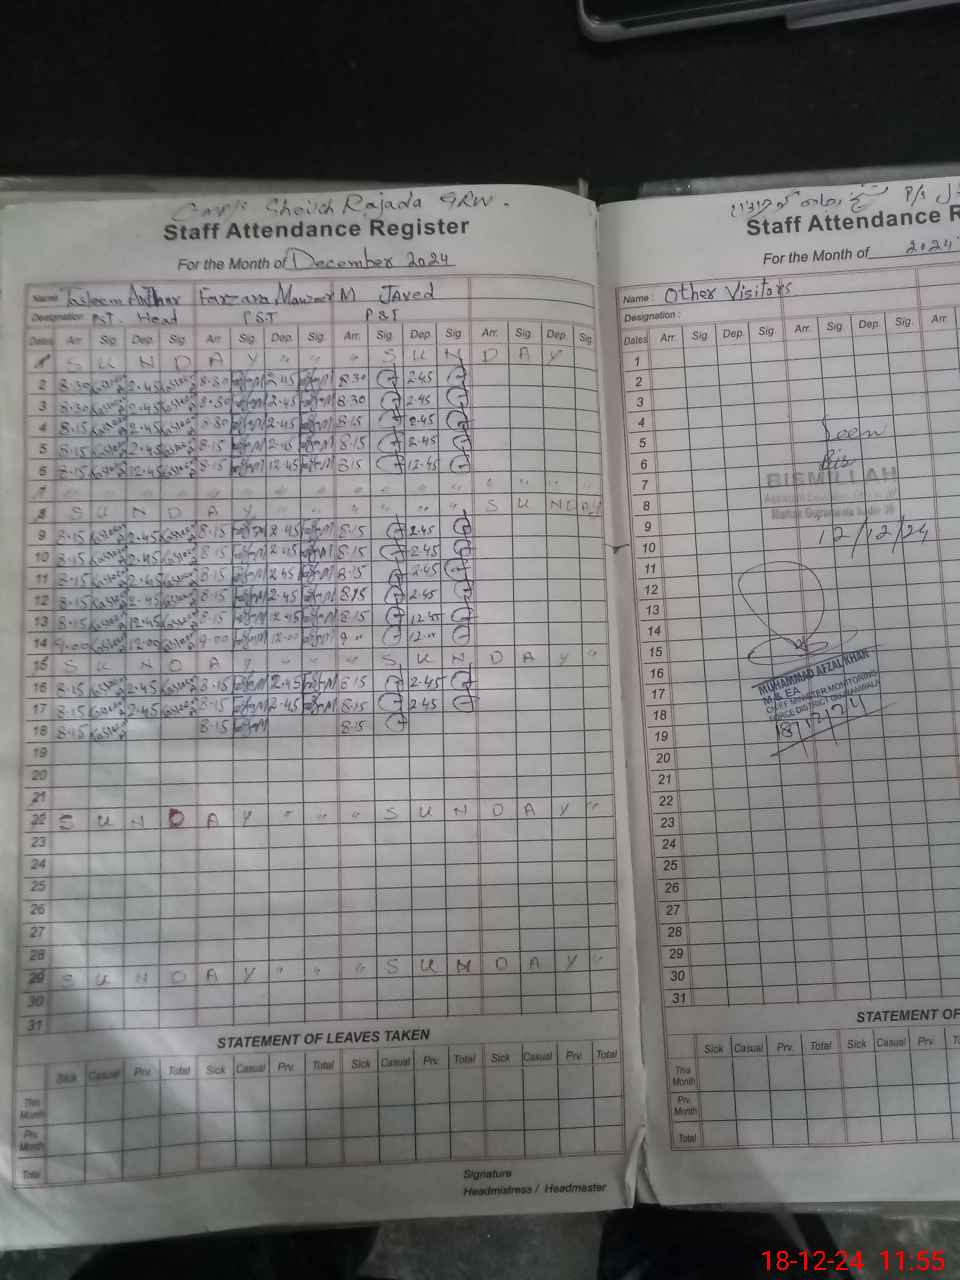 GMP/S Sheikh Rajada GRW.
Staff Attendance Register
For the Month of December 2024
Name Tasleem Akhtar Farzana Manzoor M Javed
Designation PST. Head PST PST
Dates Arr. Sig. Dep. Sig. Arr. Sig. Dep. Sig. Arr. Sig. Dep. Sig. Arr. Sig. Dep. Sig.
1 S U N D A Y " " " S U N D A Y
2 8.30 2.45 8.30 2.45 8.30 2.45
3 8.30 2.45 8.30 2.45 8.30 2.45
4 8.15 2.45 8.30 2.45 8.15 2.45
5 8.15 2.45 8.15 2.45 8.15 2.45
6 8.15 12.45 8.15 12.45 8.15 12.45
7 " " " " " " " " " " " " " " "
8 S U N D A Y " " " " " " S U N D A Y
9 8.15 2.45 8.15 2.45 8.15 2.45
10 8.15 2.45 8.15 2.45 8.15 2.45
11 8.15 2.45 8.15 2.45 8.15 2.45
12 8.15 2.45 8.15 2.45 8.15 2.45
13 8.15 12.45 8.15 12.45 8.15 12.45
14 9.00 12.00 9.00 12.00 9 " 12 "
15 S U N D A Y " " " S U N D A Y "
16 8.15 2.45 8.15 2.45 8.15 2.45
17 8.15 2.45 8.15 2.45 8.15 2.45
18 8.15 8.15 8.15
19
20
21
22 S U N D A Y " " " S U N D A Y "
23
24
25
26
27
28
29 S U N D A Y " " " S U N D A Y "
30
31
STATEMENT OF LEAVES TAKEN
Sick Casual Prv. Total Sick Casual Prv. Total Sick Casual Prv. Total Sick Casual Prv. Total
This Month
Prv. Month
Total
Signature
Headmistress / Headmaster
P/S
Staff Attendance R
For the Month of 2024
Name : Other Visitors
Designation :
Dates Arr. Sig. Dep. Sig. Arr. Sig. Dep. Sig. Arr.
1
2
3
4
5
6
7
8
9
10
11
12
13
14
15
16
17
18
19
20
21
22
23
24
25
26
27
28
29
30
31
Seen
BISMILLAH
12/12/24
MUHAMMAD AFZAL KHAN
M & EA
CHIEF MINISTER MONITORING
FORCE DISTRICT GUJRANWALA
18/12/24
STATEMENT OF
Sick Casual Prv. Total Sick Casual Prv.
This Month
Prv. Month
Total
18-12-24 11:55